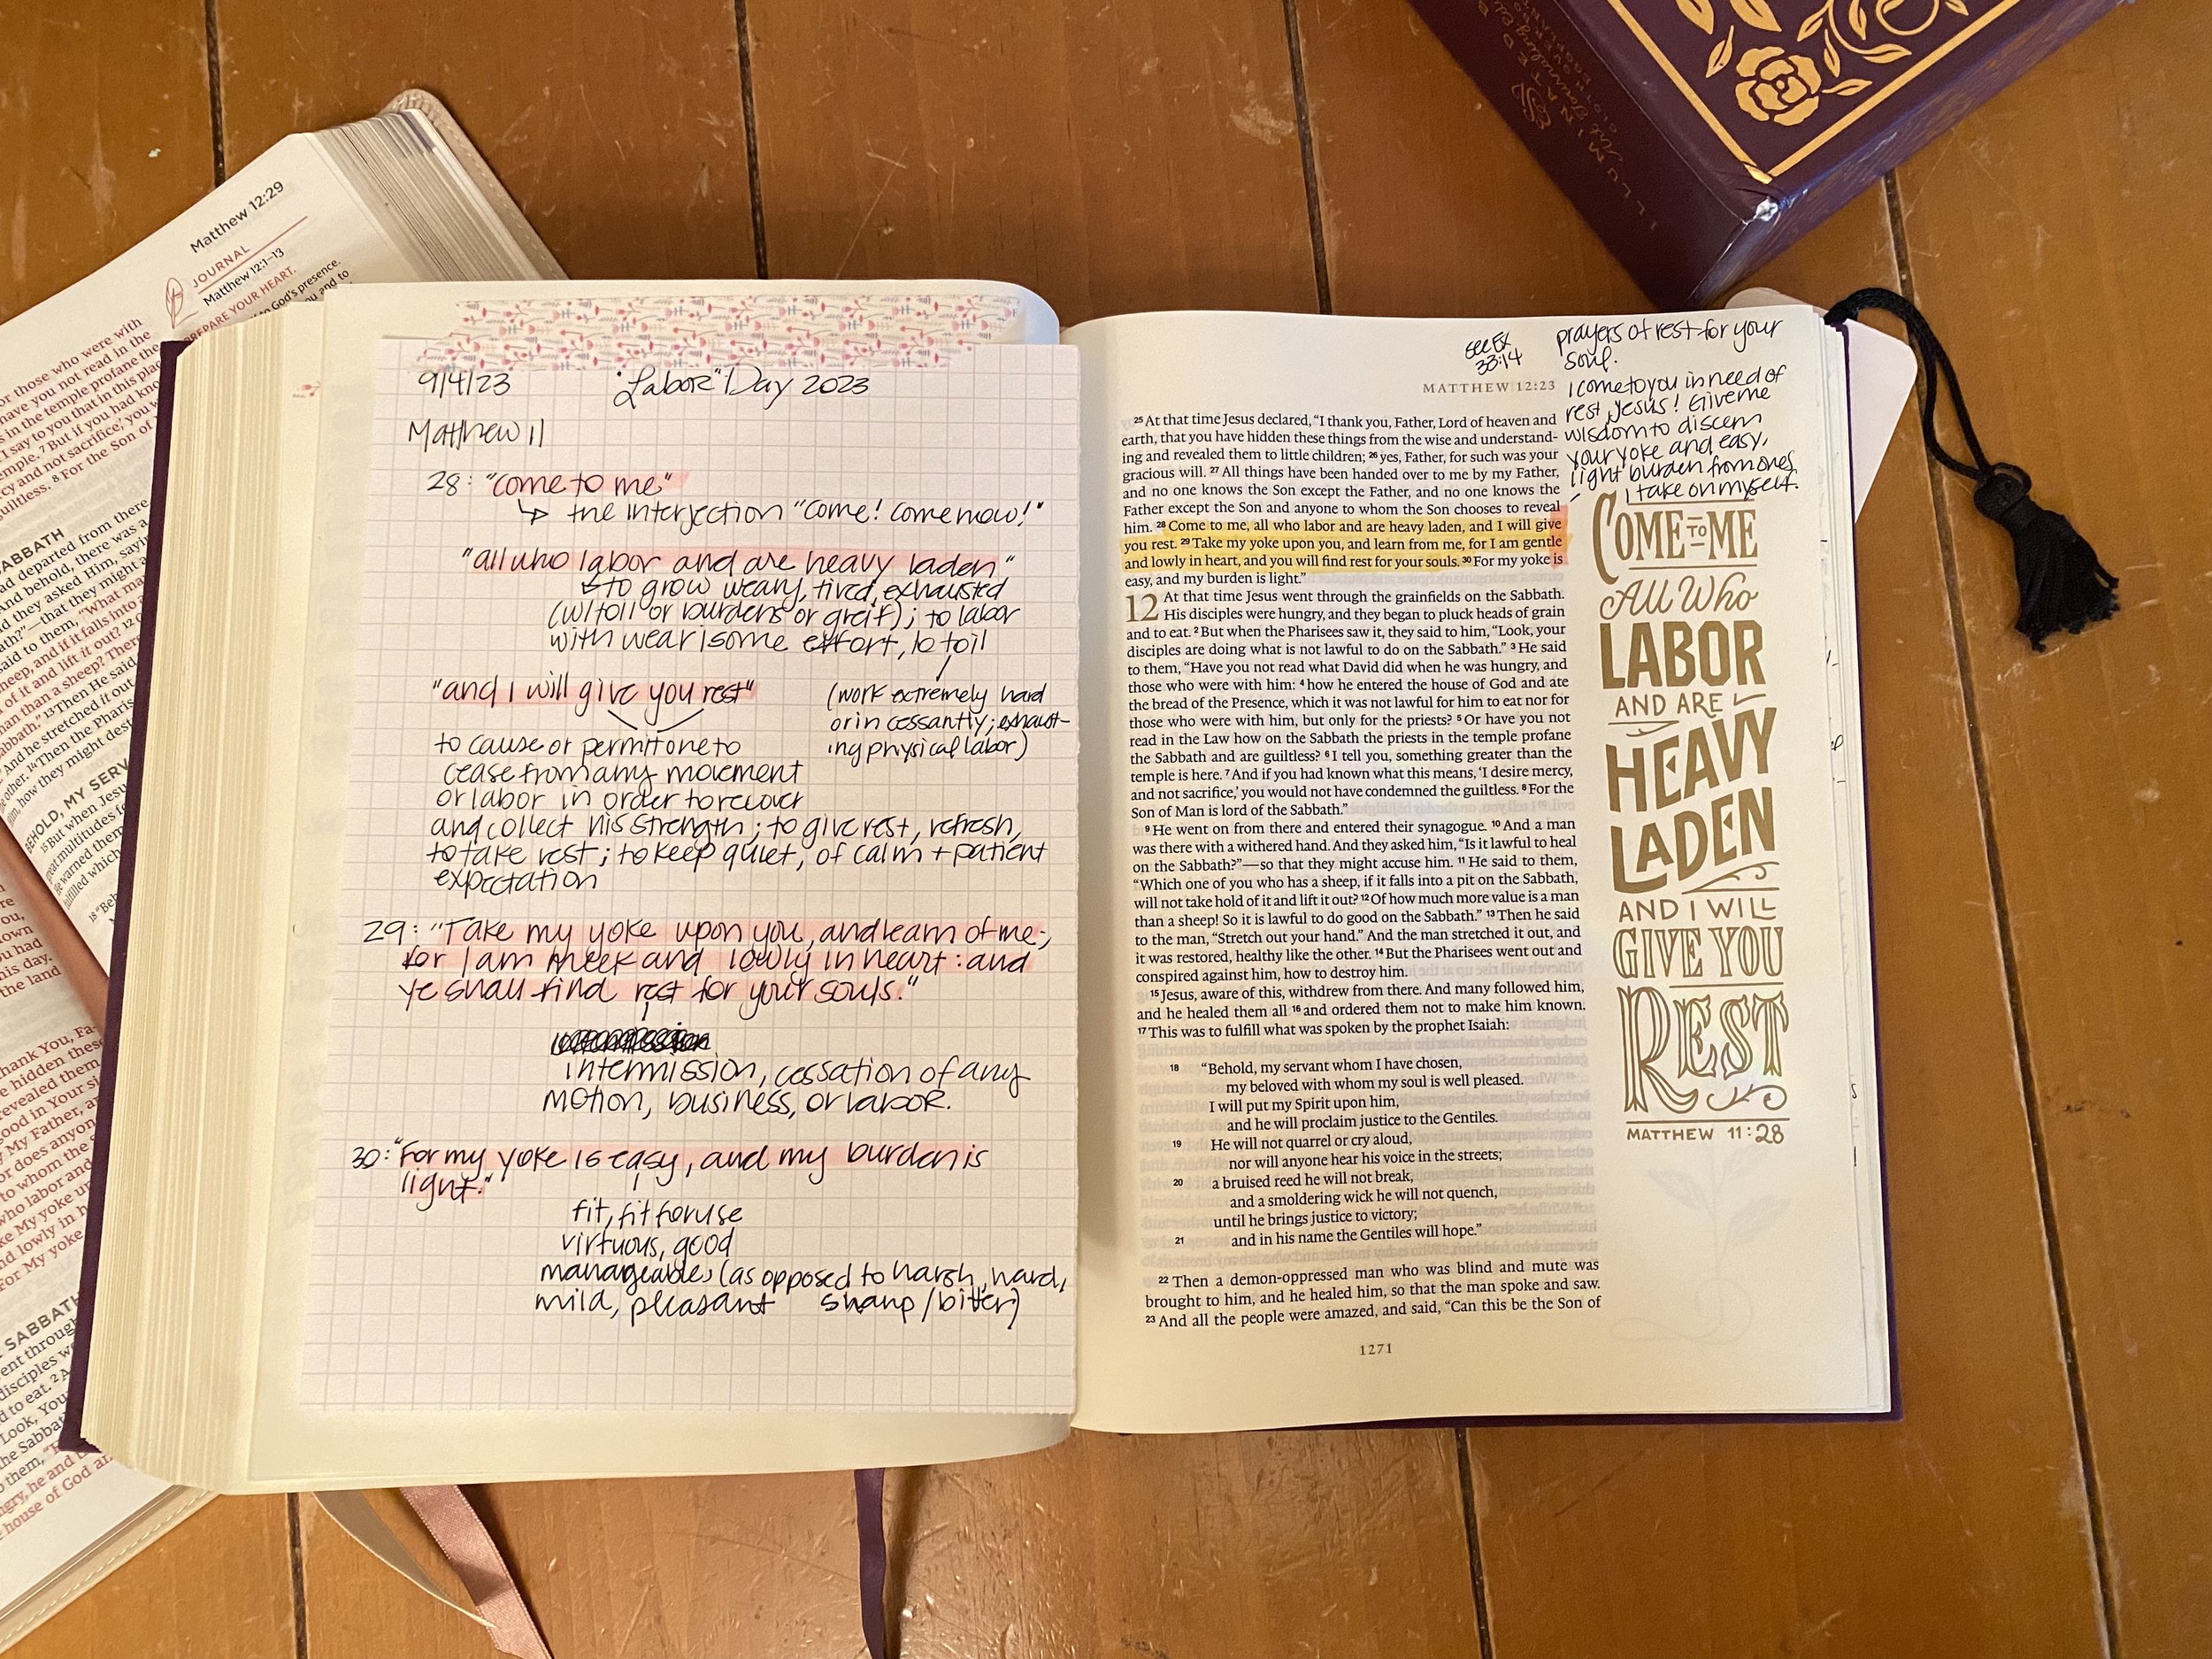 Matthew 12:29
JOURNAL
Matthew 12:1–13
PREPARE YOUR HEART.
those who were with
have you not read in the
in the temple profane the
I say to you that in this place
temple. 7 But if you had known
and not sacrifice,' you w
guiltless. 8 For the Son of
SABBATH
departed from there
And behold, there was a
BEHOLD, MY SERV
SABBATH
9/4/23 "Labor" Day 2023
Matthew 11
28: "Come to me"
↳ the interjection "Come! Come now!"
"all who labor and are heavy laden"
↳ to grow weary, tired, exhausted
(w/toil or burdens or greif); to labor
with wearisome effort, to toil
"and I will give you rest"
(work extremely hard
or incessantly; exhaust-
ing physical labor)
to cause or permit one to
cease from any movement
or labor in order to recover
and collect his strength; to give rest, refresh,
to take rest; to keep quiet, of calm + patient
expectation
29: "Take my yoke upon you, and learn of me;
for I am meek and lowly in heart: and
ye shall find rest for your souls."
intermission, cessation of any
motion, business, or labor.
30: "For my yoke is easy, and my burden is
light."
fit, fit for use
virtuous, good
manageable, (as opposed to harsh, hard,
mild, pleasant sharp/bitter)
see Ex
33:14
prayers of rest for your
soul.
I come to you in need of
rest, Jesus! Give me
wisdom to discern
your yoke and easy,
light burden from ones
I take on myself.
MATTHEW 12:23
25 At that time Jesus declared, “I thank you, Father, Lord of heaven and
earth, that you have hidden these things from the wise and understand-
ing and revealed them to little children; 26 yes, Father, for such was your
gracious will. 27 All things have been handed over to me by my Father,
and no one knows the Son except the Father, and no one knows the
Father except the Son and anyone to whom the Son chooses to reveal
him. 28 Come to me, all who labor and are heavy laden, and I will give
you rest. 29 Take my yoke upon you, and learn from me, for I am gentle
and lowly in heart, and you will find rest for your souls. 30 For my yoke is
easy, and my burden is light.”
12 At that time Jesus went through the grainfields on the Sabbath.
His disciples were hungry, and they began to pluck heads of grain
and to eat. 2 But when the Pharisees saw it, they said to him, “Look, your
disciples are doing what is not lawful to do on the Sabbath.” 3 He said
to them, “Have you not read what David did when he was hungry, and
those who were with him: 4 how he entered the house of God and ate
the bread of the Presence, which it was not lawful for him to eat nor for
those who were with him, but only for the priests? 5 Or have you not
read in the Law how on the Sabbath the priests in the temple profane
the Sabbath and are guiltless? 6 I tell you, something greater than the
temple is here. 7 And if you had known what this means, ‘I desire mercy,
and not sacrifice,’ you would not have condemned the guiltless. 8 For the
Son of Man is lord of the Sabbath.”
9 He went on from there and entered their synagogue. 10 And a man
was there with a withered hand. And they asked him, “Is it lawful to heal
on the Sabbath?”—so that they might accuse him. 11 He said to them,
“Which one of you who has a sheep, if it falls into a pit on the Sabbath,
will not take hold of it and lift it out? 12 Of how much more value is a man
than a sheep! So it is lawful to do good on the Sabbath.” 13 Then he said
to the man, “Stretch out your hand.” And the man stretched it out, and
it was restored, healthy like the other. 14 But the Pharisees went out and
conspired against him, how to destroy him.
15 Jesus, aware of this, withdrew from there. And many followed him,
and he healed them all 16 and ordered them not to make him known.
17 This was to fulfill what was spoken by the prophet Isaiah:
18 “Behold, my servant whom I have chosen,
my beloved with whom my soul is well pleased.
I will put my Spirit upon him,
and he will proclaim justice to the Gentiles.
19 He will not quarrel or cry aloud,
nor will anyone hear his voice in the streets;
20 a bruised reed he will not break,
and a smoldering wick he will not quench,
until he brings justice to victory;
21 and in his name the Gentiles will hope.”
22 Then a demon-oppressed man who was blind and mute was
brought to him, and he healed him, so that the man spoke and saw.
23 And all the people were amazed, and said, “Can this be the Son of
1271
COME TO ME
All Who
LABOR
AND ARE
HEAVY
LADEN
AND I WILL
GIVE YOU
REST
MATTHEW 11:28